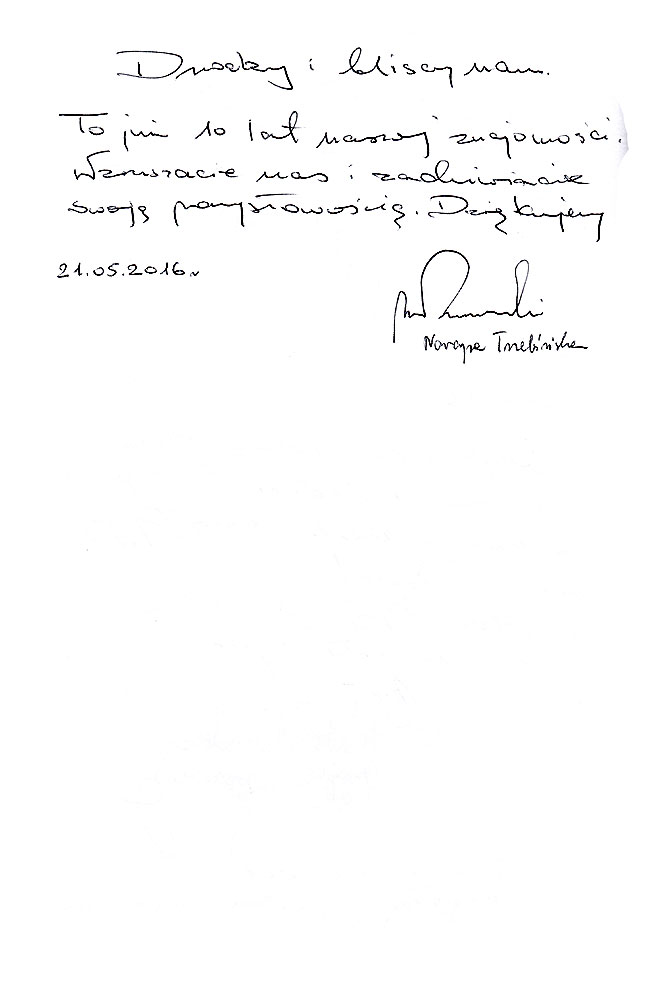 Drodzy i bliscy nam.
To już 10 lat naszej znajomości.
Wzruszacie nas i zadziwiacie
swoją pomysłowością. Dziękujemy
21.05.2016r
Trzebińska